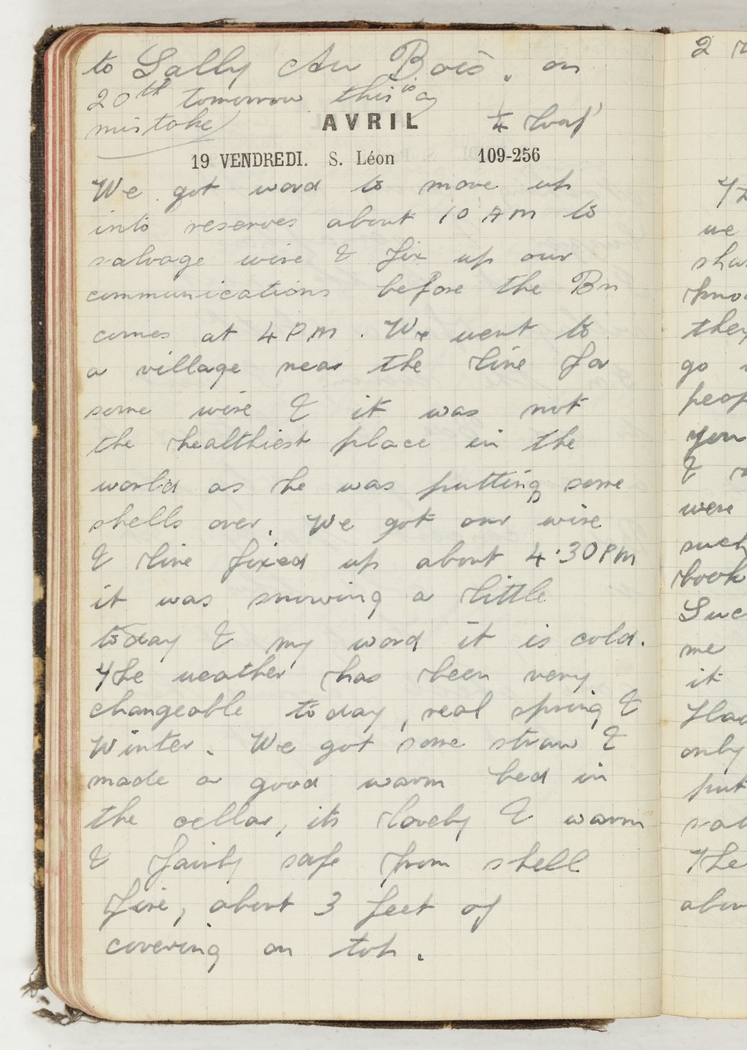 to Sally Au Bois. on
20th tomorrow this is a
mistake)
AVRIL
1/4 loaf
19 VENDREDI. S. Léon 109-256
We got word to move up
into reserves about 10 AM to
salvage wire & fix up our
communications before the Bn
comes at 4 PM. We went to
a village near the line for
some wire & it was not
the healthiest place in the
world as he was putting some
shells over. We got our wire
& line fixed up about 4.30PM
it was snowing a little
today & my word it is cold.
The weather has been very
changeable today, real spring &
Winter. We got some straw &
made a good warm bed in
the cellar, its lovely & warm
& fairly safe from shell
fire, about 3 feet of
covering on top.
2
we
they
go
you
&
were
such
book
me
it
only
put
The